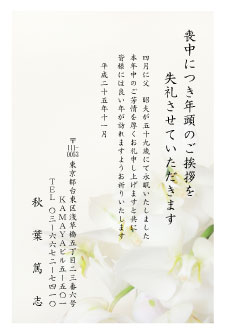 喪中につき年頭のご挨拶を
失礼させていただきます
四月に父 昭夫が五十九歳にて永眠いたしました
本年中のご芳情を厚くお礼申し上げますと共に
皆様には良い年が訪れますようお祈りいたします
平成二十五年十一月
〒111-0053
東京都台東区浅草橋五丁目二三番六号
KAMAYAビル五-五〇一
TEL 〇三-六六七二-七四一〇
秋葉篤志